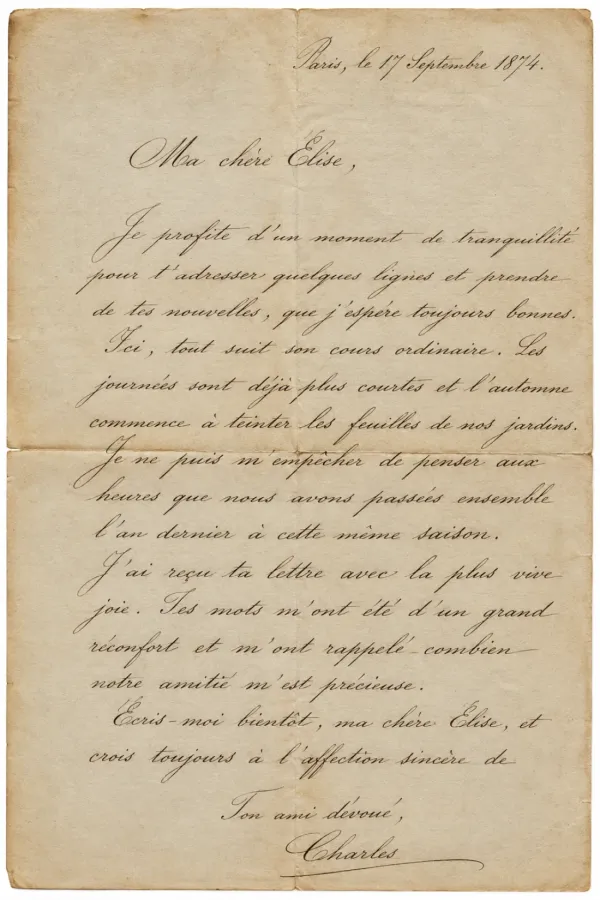 Paris, le 17 Septembre 1874.
Ma chére Élise,
Je profite d'un moment de tranquillité
pour t'adresser quelques lignes et prendre
de tes nouvelles, que j'espére toujours bonnes.
Ici, tout suit son cours ordinaire. Les
journées sont déjà plus courtes et l'automne
commence à teinter les feuilles de nos jardins.
Je ne puis m'empêcher de penser aux
heures que nous avons passées ensemble
l'an dernier à cette même saison.
J'ai reçu ta lettre avec la plus vive
joie. Tes mots m'ont été d'un grand
réconfort et m'ont rappelé combien
notre amitié m'est précieuse.
Écris-moi bientôt, ma chére Élise, et
crois toujours à l'affection sincère de
Ton ami dévoué,
Charles